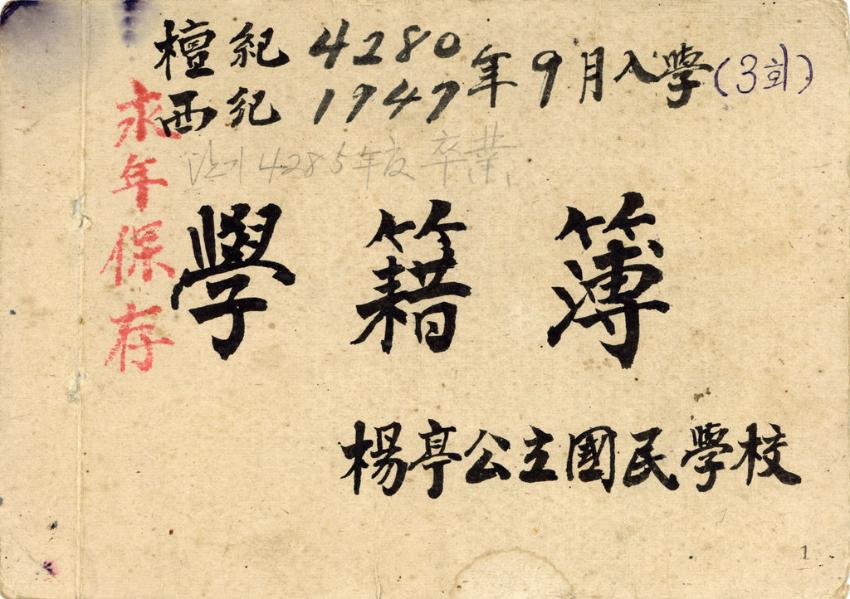 檀紀 4280
西紀 1947 年 9月入學 (3회)
永年保存
4285年度 卒業
學籍簿
楊亭公立國民學校
1